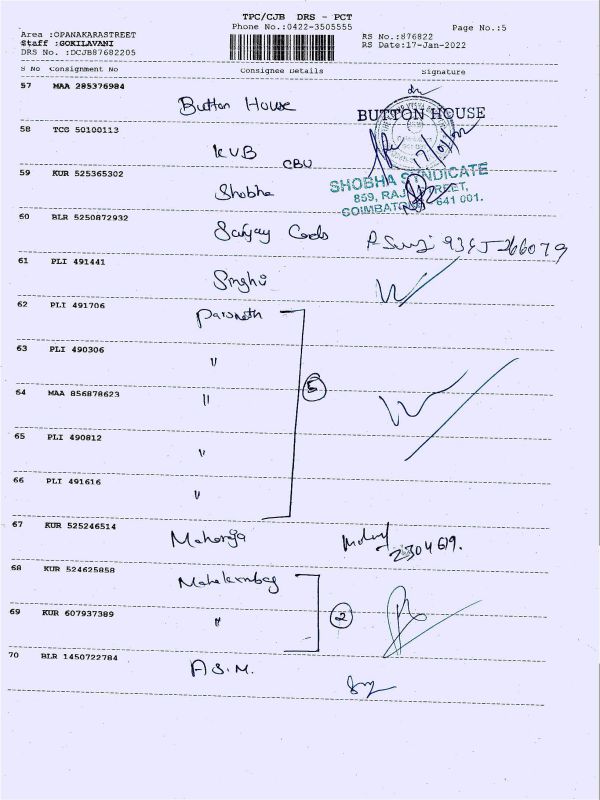 TPC/CJB DRS - PCT
Phone No.:0422-3505555
Page No.:5
Area :OPANAKARASTREET
Staff :GOKILAVANI
DRS No. :DCJB87682205
RS No.:876822
RS Date:17-Jan-2022
S No Consignment No Consignee Details Signature
57 MAA 285376984
Button House
BUTTON HOUSE
58 TCG 50100113
KVB CBU
17/01/22
59 KUR 525365302
Shobha
SHOBHA SYNDICATE
859, RAJ STREET,
COIMBATORE 641 001.
60 BLR 5250872932
Sanjay Cards
61 PLI 491441
Singhvi
62 PLI 491706
Parsnath
63 PLI 490306
"
5
64 MAA 856878623
"
65 PLI 490812
"
66 PLI 491616
"
67 KUR 525246514
Maharaja
2304619.
68 KUR 524625858
69 KUR 607937389
"
2
70 BLR 1450722784
A.S.M.